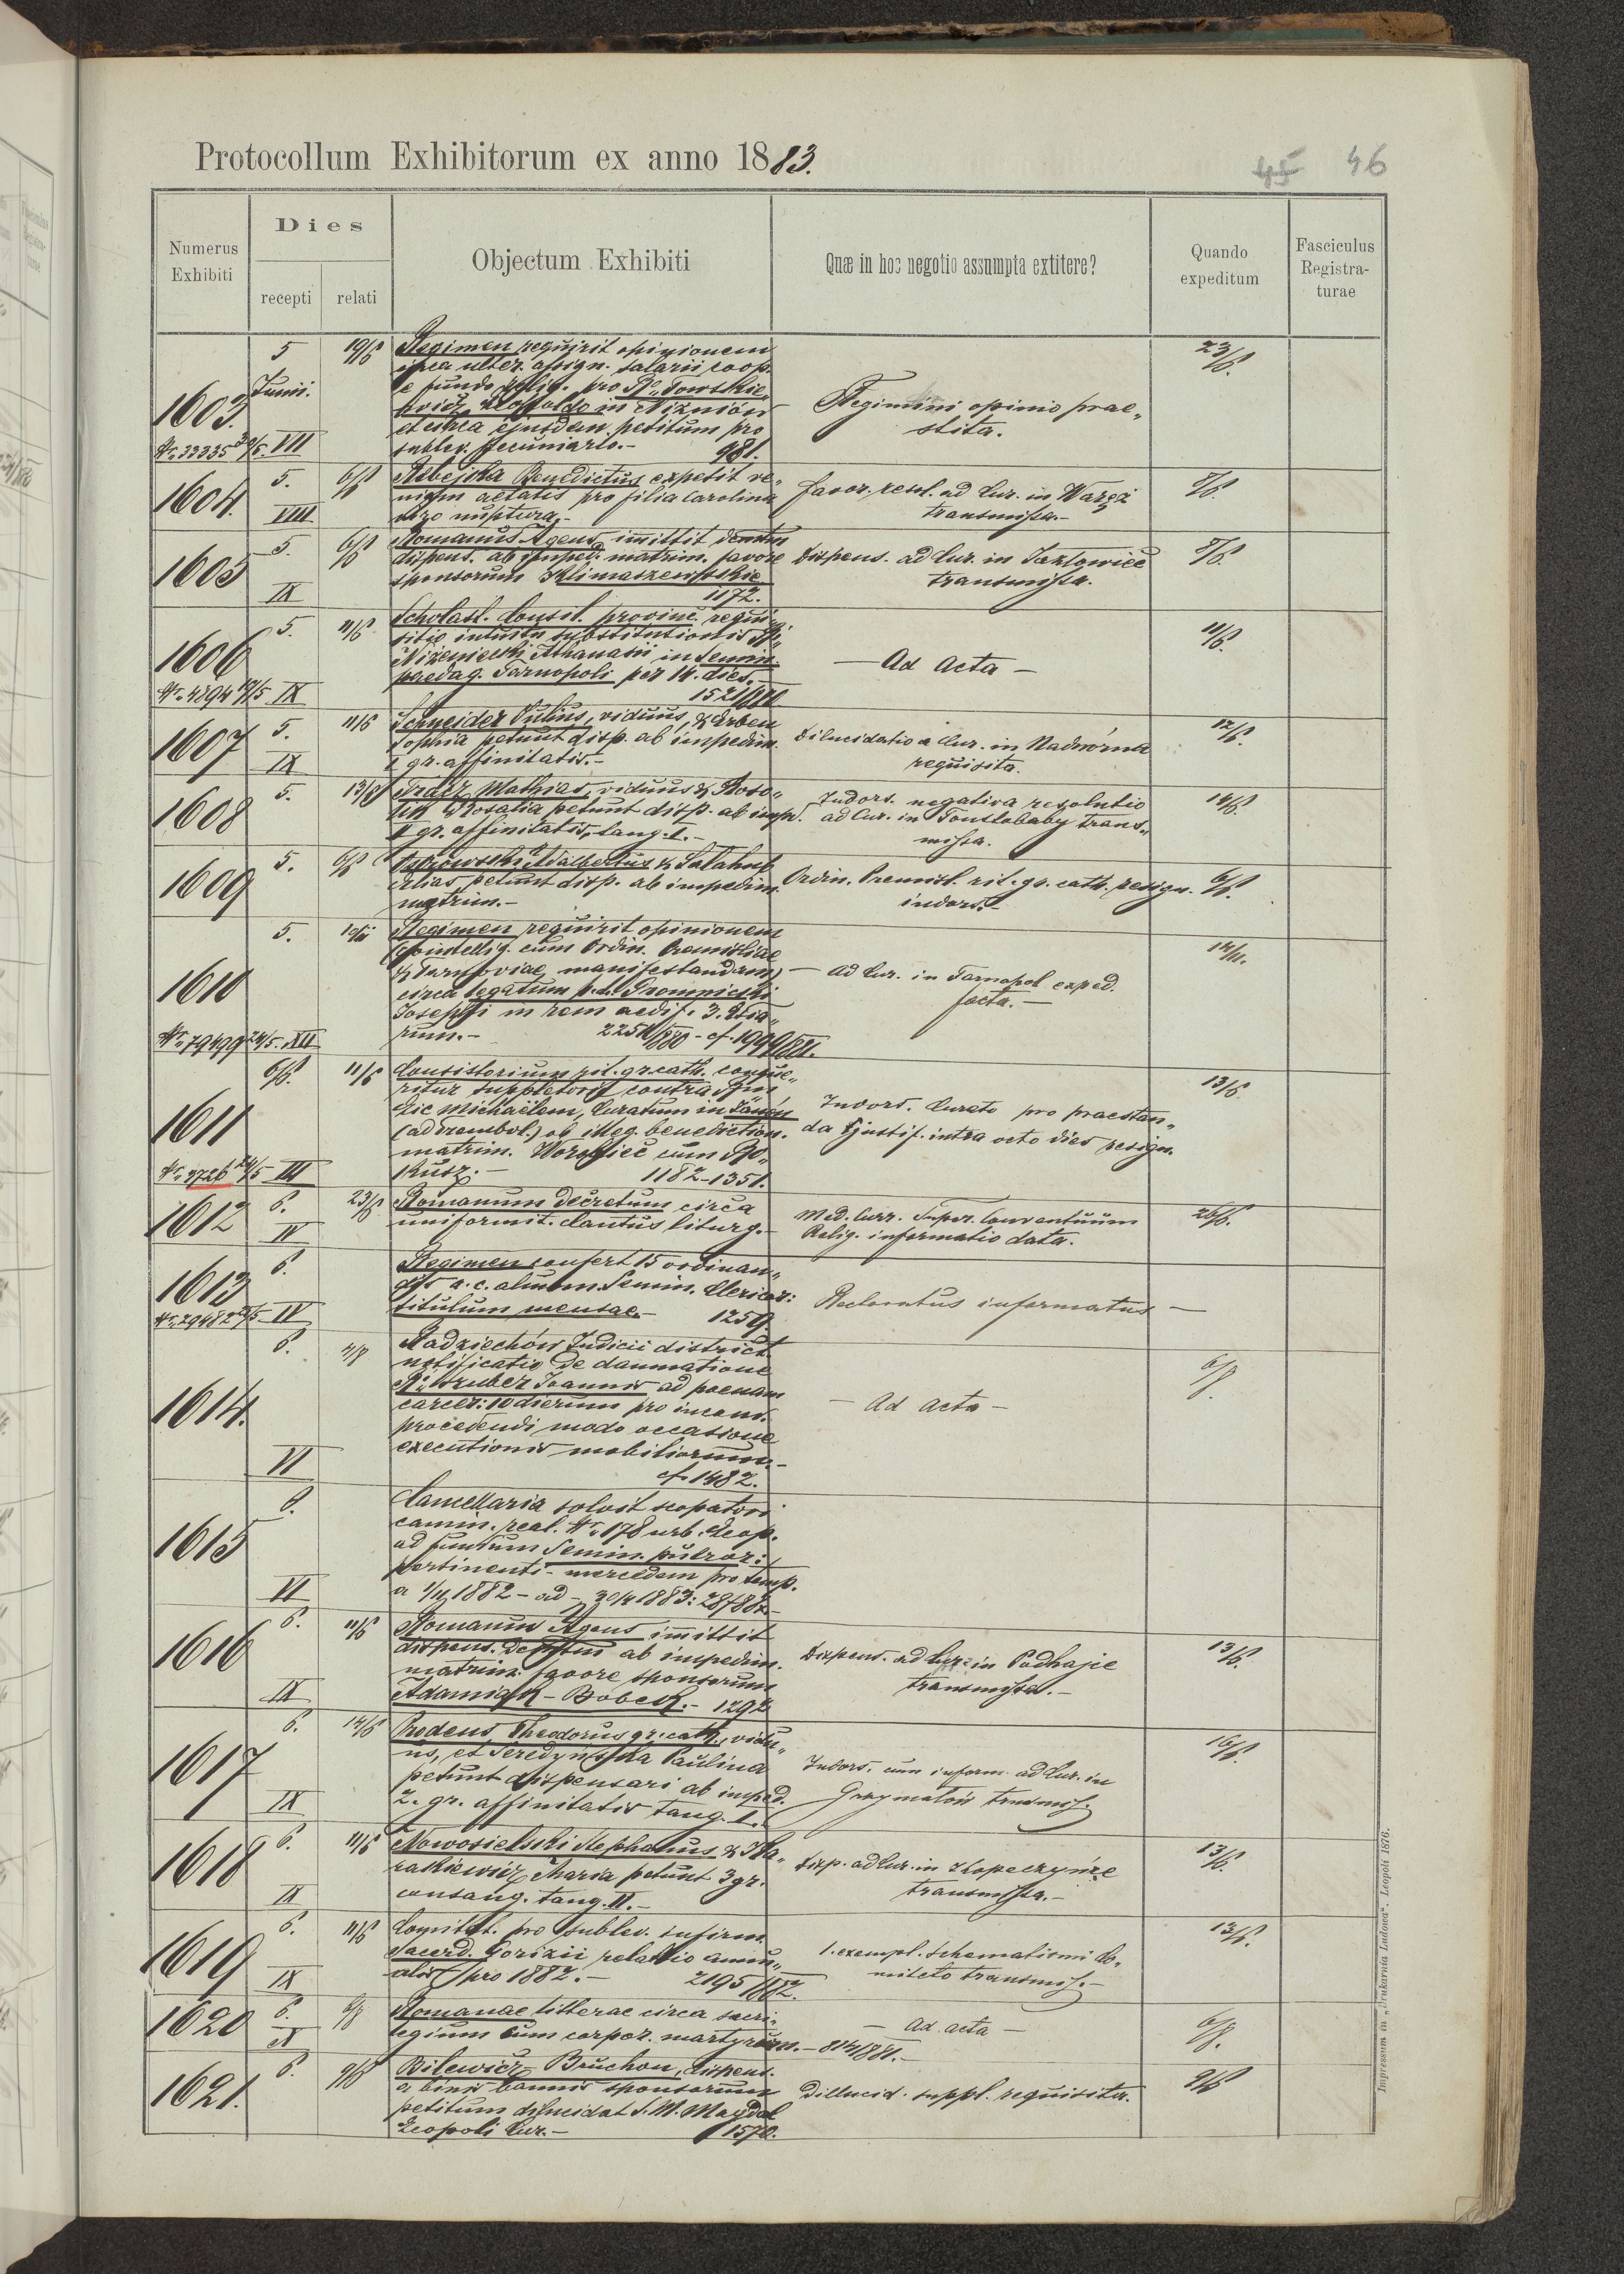 Protocollum Exhibitorum ex anno 1883.
45 46
Numerus Exhibiti
Dies
recepti
relati
Objectum Exhibiti
Quæ in hoc negotio assumpta extitere?
Quando expeditum
Fasciculus Registraturae
1603.
5 Junii.
19/6
Regimen requirit opinionem
circa ulter. assign. salarii coop.
e fundo relig. pro
in Niżniów
et circa ejusdem petitum pro
sublev. pecuniario.- 981.
Regimini opinio prae„
stita.
23/6.
Nr. 33335 VII
1604.
5.
VIII
6/6
Benedictus expetit ve„
niam aetatis pro filia Carolina
nuptura.-
favor. resol. ad Cur. in Waręż
transmissa.-
8/6.
1605
5.
IX
6/6
Romanus Agens immittit
dispens. ab imped. matrim. favore
sponsorum
1172.
Dispens. ad Cur. in Jazłowiec
transmissa.
8/6.
1606
5.
11/6
Scholast. Consil. provinc. requi„
sitio intuitu substitutionis
Athanasii in Semin.
paedag. Tarnopoli per 14. dies.-
1521/880
— Ad Acta —
11/6.
Nr. 4894 IX
1607
5.
IX
11/6
Schneider Julius, viduus, & Erben
Sophia petunt disp. ab impedim.
I gr. affinitatis.-
Dilucidatio a Cur. in Nadwórna
requisita.
12/6.
1608
5.
13/6
Mathias, viduus &
Rosalia petunt disp. ab imp.
II gr. affinitatis, tang. I.-
Indors. negativa resolutio
ad Cur. in Toustobaby trans„
missa.
14/6.
1609
5.
6/6
Adalbertus &
petunt disp. ab impedim.
matrim.-
Ordin. Premisl. rit. gr. cath. resign.
indors.-
6/6.
1610
5.
Regimen requirit opinionem
cum Ordin. Premisliae
& Tarnoviae manifestandam)
circa legatum p.d. Gromnicki
Josephi in rem aedif. 3.
rum.- 2251/880 - cf. 1999/881.
— ad Cur. in Tarnopol exped.
facta.—
14/11.
Nr. 79499 24/5. XII
1611
6/6.
11/6
Consistorium rit. gr. cath. conque„
ritur suppletorie contra
Michaëlem, Curatum in
ob illeg. benediction.
matrim. cum
1182-1351.
Indors. Curato pro praestan„
da justif. intra octo dies resign.
13/6.
Nr. 3726 24/5 III
1612
6.
IV
23/6
Romanum Decretum circa
uniformit. Cantus liturg.-
Med. Curr. Super. Conventuum
Relig. informatio data.
26/6.
1613
6.
Regimen confert 15 ordinan„
dis a. c. alumn. Semin. Clericor:
titulum mensae.- 1259.
Rectoratus informatus —
Nr. 29482 IV
1614.
6.
VI
4/8
Radziechów Judicii district.
notificatio de damnatione
Joannis ad poenam
carcer: 10 dierum pro
procedendi modo occasione
executionis mobiliarum.-
cf. 1482.
— Ad acta —
6/8.
1615
6.
VI
Cancellaria solvit scopatori
camin. real. Nr. 178 urb. Leop.
ad fundum Semin. pueror:
pertinenti - mercedem pro temp.
a 1/11 1882 - ad - 30/4 1883:
1616
6.
IX
11/6
Romanus Agens immittit
dispens. ab impedim.
matrim. favore sponsorum
Adamiak - Bobek.- 1292
Dispens. ad Cur. in Podhajce
transmissa.-
13/6.
1617
6.
IX
14/6
Prodeus Theodorus gr. cath., vidu„
us, et Seredyńska Paulina
petunt dispensari ab imped.
2. gr. affinitatis tang. I.
Indors. cum inform. ad Cur. in
Grzymałów transmis.
16/6.
1618
6.
IX
11/6
Nowosielski Stephanus &
Maria petunt 3 gr.
consang. tang. II.-
Disp. ad Cur. in
transmissa.-
13/6.
1619
6.
IX
11/6
Comitat. pro sublev. infirm.
Sacerd. Goriziae relatio annu„
alis pro 1882.- 2195/882.
1. exempl. Schematismi Co„
miteto transmis.-
13/6.
1620
6.
IX
6/8
Romanae litterae circa sacri„
legium cum corpor. martyrum.- 814/881.-
— ad. acta —
6/8.
1621.
6.
9/6
Bilewicz - Bruchon, dispens.
a binis bannis sponsorum
petitum dilucidat S. M. Magdal
Leopoli Cur.- 1570.
Dillucid. suppl. requisita.
9/6
Impressum in „Drukarnia Ludowa“. Leopoli 1876.